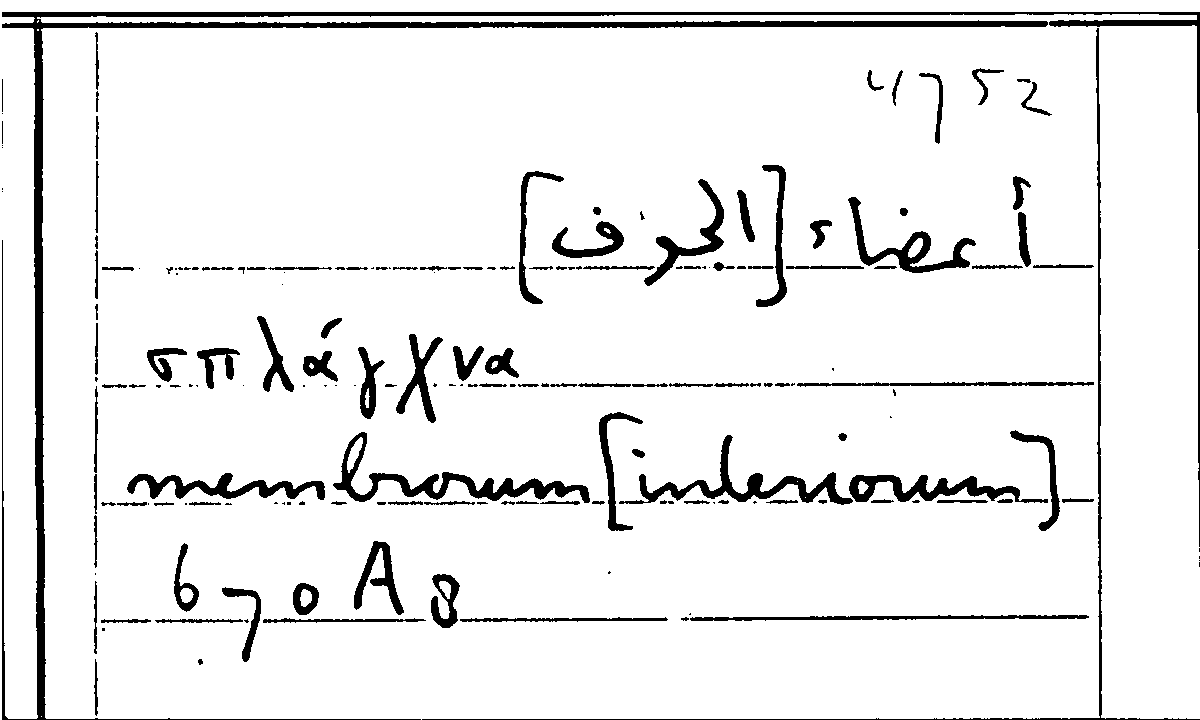 4752
أعضاء [الجوف]
σπλάγχνα
membrorum [interiorum]
670 A 8